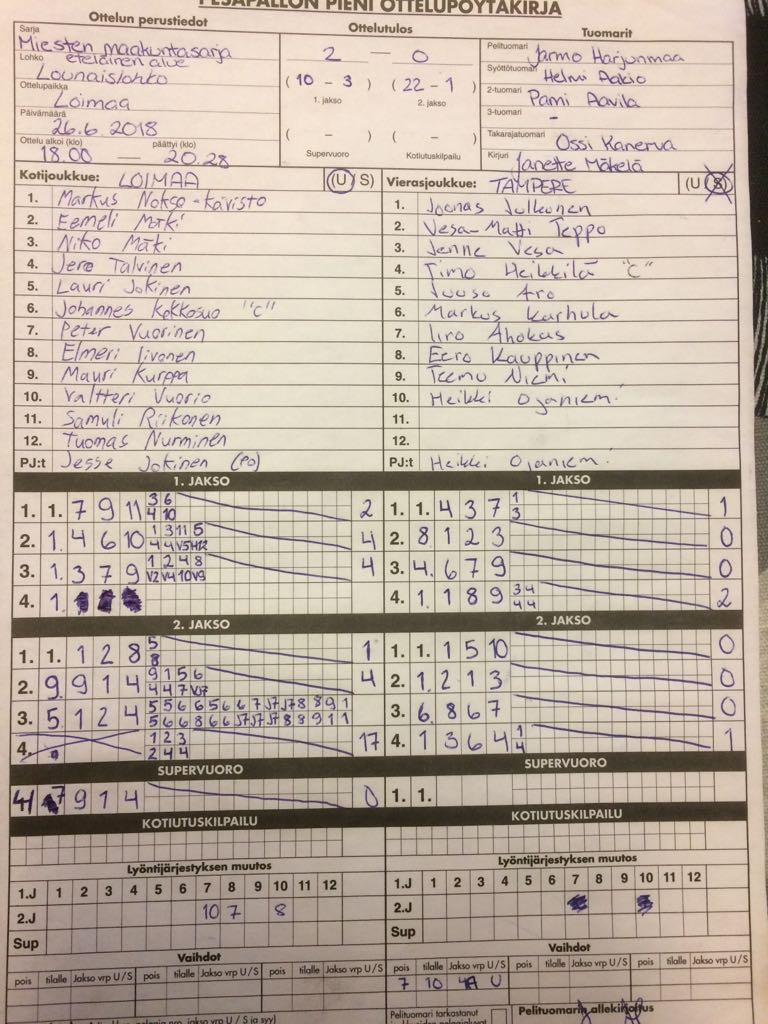 PESÄPALLON PIENI OTTELUPÖYTÄKIRJA
Ottelun perustiedot
Sarja
Miesten maakuntasarja
Lohko eteläinen alue
Lounaislohko
Ottelupaikka
Loimaa
Päivämäärä
26.6.2018
Ottelu alkoi (klo) päättyi (klo)
18.00 — 20.28
Ottelutulos
2 — 0
(10 - 3) (22 - 1)
1. jakso 2. jakso
( - ) ( - )
Supervuoro Kotiutuskilpailu
Tuomarit
Pelituomari Jarmo Harjunmaa
Syöttötuomari Helmi Aakio
2-tuomari Pami Aavila
3-tuomari -
Takarajatuomari Ossi Kanerva
Kirjuri Janette Mäkelä
Kotijoukkue: LOIMAA (U/S)
1. Markus Nokso-Koivisto
2. Eemeli Mäki
3. Niko Mäki
4. Jere Talvinen
5. Lauri Jokinen
6. Johannes Kokkosuo "C"
7. Peter Vuorinen
8. Elmeri Iivonen
9. Mauri Kurppa
10. Valtteri Vuorio
11. Samuli Riikonen
12. Tuomas Nurminen
PJ:t Jesse Jokinen (PO)
Vierasjoukkue: TAMPERE (U S)
1. Joonas Julkunen
2. Vesa-Matti Teppo
3. Janne Vesa
4. Timo Heikkilä "C"
5. Juuso Aro
6. Markus Karhula
7. Iiro Ahokas
8. Eero Kauppinen
9. Teemu Niemi
10. Heikki Ojaniemi
11.
12.
PJ:t Heikki Ojaniemi
1. JAKSO
1. 1. 7 9 11 3 6 2
4 10
2. 1. 4 6 10 1 3 11 5 4
4 4 V5 H12
3. 1. 3 7 9 1 2 4 8 4
V2 V4 10 V9
4. 1.
1. JAKSO
1. 1. 4 3 7 1 1
3
2. 8 1 2 3 0
3. 4. 6 7 9 0
4. 1 1 8 9 3 4 2
4 4
2. JAKSO
1. 1. 1 2 8 5 1
8
2. 9 9 1 4 9 1 5 6 4
4 4 7 V7
3. 5 1 2 4 5 5 6 6 5 6 6 7 J7 J7 8 8 9 1
5 6 6 8 6 6 J7 J7 J7 8 8 9 1 1
4. 1 2 3 17
2 4 4
2. JAKSO
1. 1. 1 5 10 0
2. 1. 2 1 3 0
3. 6. 8 6 7 0
4. 1 3 6 4 1 1
4
SUPERVUORO
7 9 1 4 0
SUPERVUORO
1. 1.
KOTIUTUSKILPAILU
KOTIUTUSKILPAILU
Lyöntijärjestyksen muutos
1.J 1 2 3 4 5 6 7 8 9 10 11 12
2.J 10 7 8
Sup
Lyöntijärjestyksen muutos
1.J 1 2 3 4 5 6 7 8 9 10 11 12
2.J
Sup
Vaihdot
pois tilalle Jakso vrp U/S pois tilalle Jakso vrp U/S pois tilalle Jakso vrp U/S
Vaihdot
pois tilalle Jakso vrp U/S pois tilalle Jakso vrp U/S pois tilalle Jakso vrp U/S
7 10 4A U
Pelituomari tarkastanut
Pelituomarin allekirjoitus